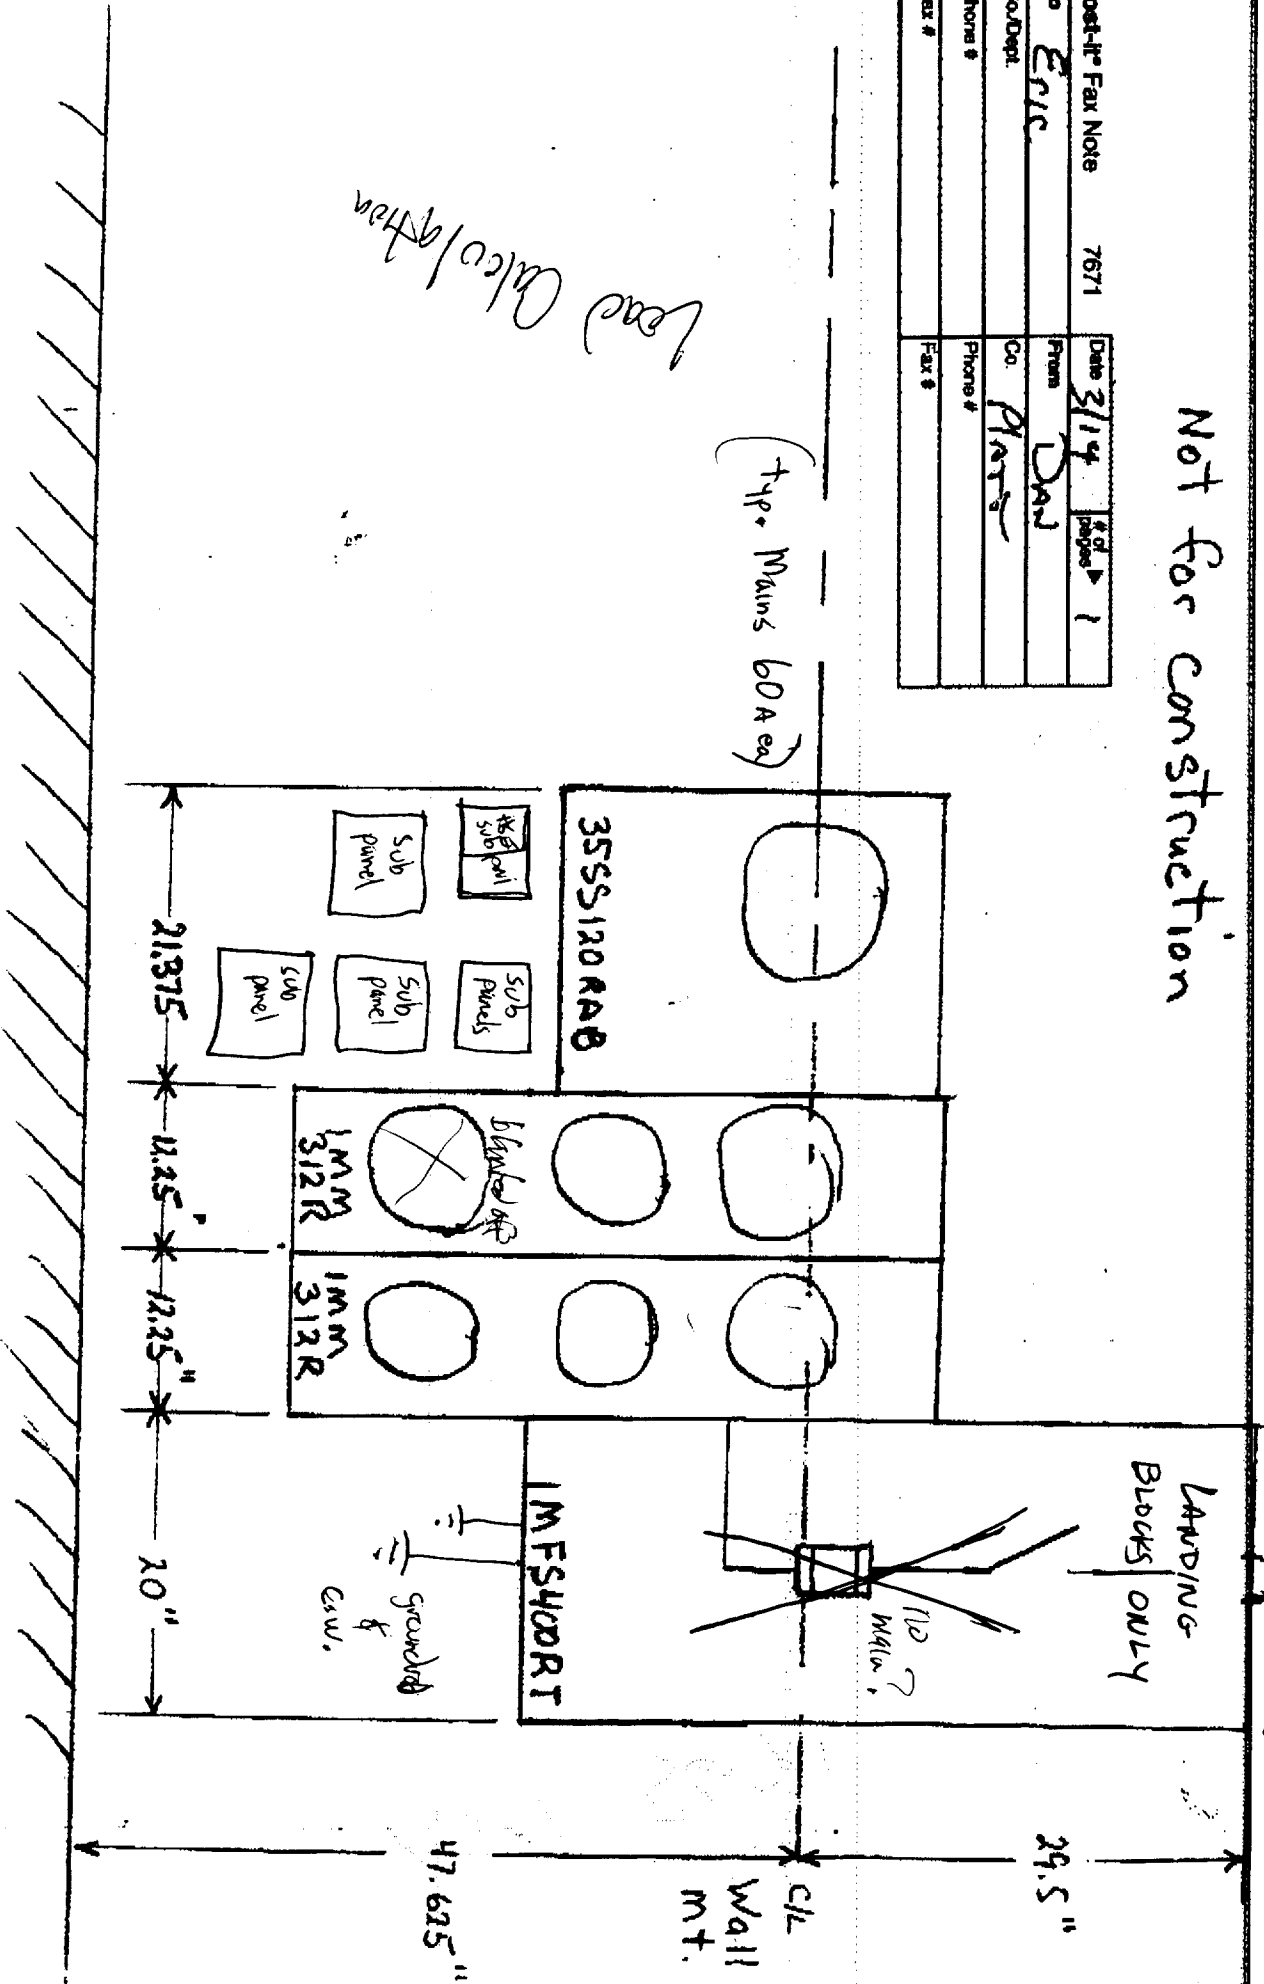 Not for construction
ost-it® Fax Note 7671
Date 3/14 # of pages ▶ 1
o Eric
From DAN
o./Dept.
Co. Platt
hone #
Phone #
ax #
Fax #
Load Calculation
(typ. Mains 60A ea)
35SS120RAB
sub pnl
sub
panel
sub
panels
sub
panel
sub
panel
1MM
312R
blanked off
1MM
312R
LANDING
BLOCKS ONLY
no
main?
1MFS400RT
groundrod
&
c.w.
21.375
12.25"
12.25"
20"
29.5"
C/L
Wall
mt.
47.625"